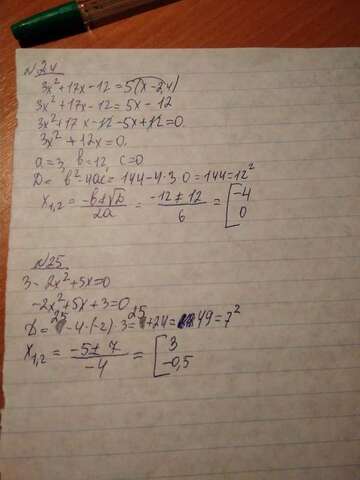 №24
3x²+17x-12=5(x-2,4)
3x²+17x-12=5x-12
3x²+17x-12-5x+12=0
3x²+12x=0.
a=3, b=12, c=0
D=b²-4ac=144-4·3·0=144=12²
x₁,₂=(-b±√D)/2a=(-12±12)/6=[-4
0
№25
3-2x²+5x=0
-2x²+5x+3=0
D=25-4·(-2)·3=25+24=49=7²
x₁,₂=(-5±7)/-4=[3
-0,5